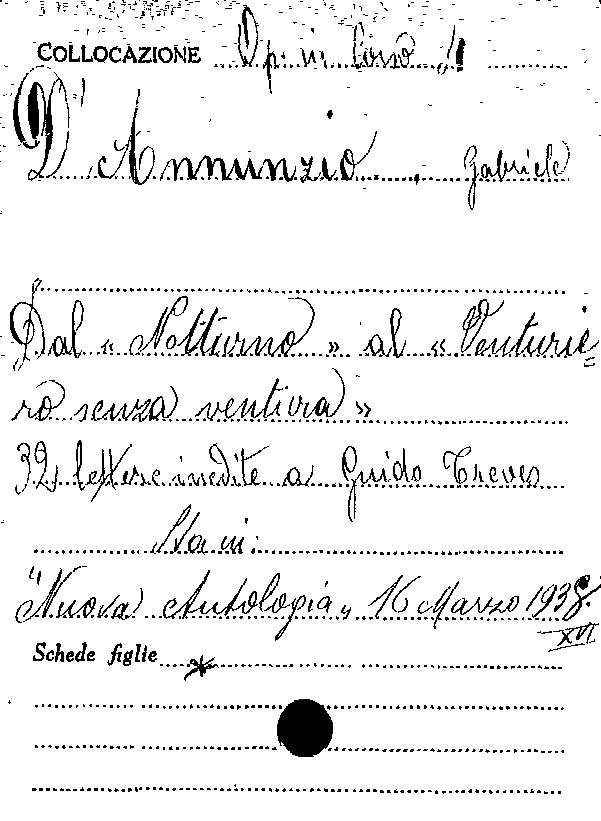 COLLOCAZIONE Op. in Corso 11
D'Annunzio. Gabriele
Dal « Notturno » al « Venturie=
ro senza ventura »
32 lettere inedite a Guido Treves
Sta in:
"Nuova Antologia" 16 Marzo 1938.
XVI
Schede figlie *